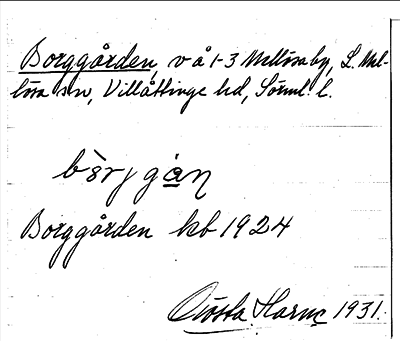 Borggården, v å 1-3 Mellösaby, L. Mel-
lösa sn, Villåttinge hd, Sörml. l.
bòrjgàn
Borggården kb 1924
Gösta Harne 1931.